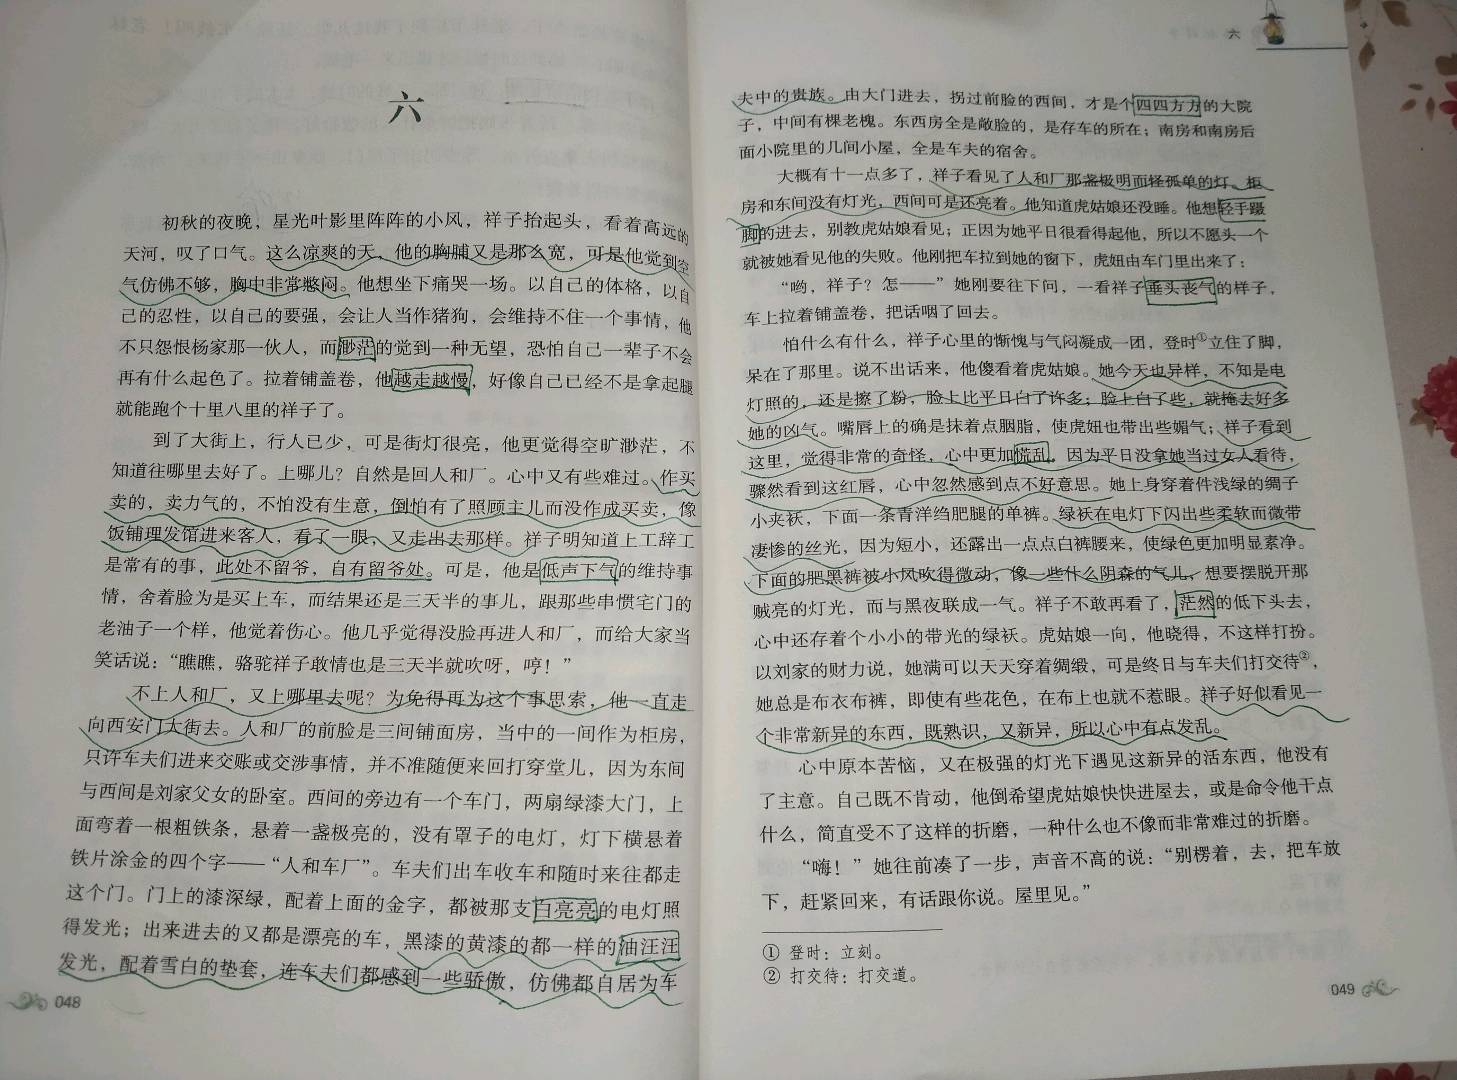 六
初秋的夜晚，星光叶影里阵阵的小风，祥子抬起头，看着高远的
天河，叹了口气。这么凉爽的天，他的胸脯又是那么宽，可是他觉到空
气仿佛不够，胸中非常憋闷。他想坐下痛哭一场。以自己的体格，以自
己的忍性，以自己的要强，会让人当作猪狗，会维持不住一个事情，他
不只怨恨杨家那一伙人，而渺茫的觉到一种无望，恐怕自己一辈子不会
再有什么起色了。拉着铺盖卷，他越走越慢，好像自己已经不是拿起腿
就能跑个十里八里的祥子了。
到了大街上，行人已少，可是街灯很亮，他更觉得空旷渺茫，不
知道往哪里去好了。上哪儿？自然是回人和厂。心中又有些难过。作买
卖的，卖力气的，不怕没有生意，倒怕有了照顾主儿而没作成买卖，像
饭铺理发馆进来客人，看了一眼，又走出去那样。祥子明知道上工辞工
是常有的事，此处不留爷，自有留爷处。可是，他是低声下气的维持事
情，舍着脸为是买上车，而结果还是三天半的事儿，跟那些串惯宅门的
老油子一个样，他觉着伤心。他几乎觉得没脸再进人和厂，而给大家当
笑话说：“瞧瞧，骆驼祥子敢情也是三天半就吹呀，哼！”
不上人和厂，又上哪里去呢？为免得再为这个事思索，他一直走
向西安门大街去。人和厂的前脸是三间铺面房，当中的一间作为柜房，
只许车夫们进来交账或交涉事情，并不准随便来回打穿堂儿，因为东间
与西间是刘家父女的卧室。西间的旁边有一个车门，两扇绿漆大门，上
面弯着一根粗铁条，悬着一盏极亮的，没有罩子的电灯，灯下横悬着
铁片涂金的四个字——“人和车厂”。车夫们出车收车和随时来往都走
这个门。门上的漆深绿，配着上面的金字，都被那支白亮亮的电灯照
得发光；出来进去的又都是漂亮的车，黑漆的黄漆的都一样的油汪汪
发光，配着雪白的垫套，连车夫们都感到一些骄傲，仿佛都自居为车
048
六
夫中的贵族。由大门进去，拐过前脸的西间，才是个四四方方的大院
子，中间有棵老槐。东西房全是敞脸的，是存车的所在；南房和南房后
面小院里的几间小屋，全是车夫的宿舍。
大概有十一点多了，祥子看见了人和厂那盏极明而怪孤单的灯。柜
房和东间没有灯光，西间可是还亮着。他知道虎姑娘还没睡。他想轻手蹑
脚的进去，别教虎姑娘看见；正因为她平日很看得起他，所以不愿头一个
就被她看见他的失败。他刚把车拉到她的窗下，虎妞由车门里出来了：
“哟，祥子？怎——”她刚要往下问，一看祥子垂头丧气的样子，
车上拉着铺盖卷，把话咽了回去。
怕什么有什么，祥子心里的惭愧与气闷凝成一团，登时①立住了脚，
呆在了那里。说不出话来，他傻看着虎姑娘。她今天也异样，不知是电
灯照的，还是擦了粉，脸上比平日白了许多；脸上白了些，就掩去好多
她的凶气。嘴唇上的确是抹着点胭脂，使虎妞也带出些媚气；祥子看到
这里，觉得非常的奇怪，心中更加慌乱，因为平日没拿她当过女人看待，
骤然看到这红唇，心中忽然感到点不好意思。她上身穿着件浅绿的绸子
小夹袄，下面一条青洋绉肥腿的单裤。绿袄在电灯下闪出些柔软而微带
凄惨的丝光，因为短小，还露出一点点白裤腰来，使绿色更加明显素净。
下面的肥黑裤被小风吹得微动，像一些什么阴森的气儿，想要摆脱开那
贼亮的灯光，而与黑夜联成一气。祥子不敢再看了，茫然的低下头去，
心中还存着个小小的带光的绿袄。虎姑娘一向，他晓得，不这样打扮。
以刘家的财力说，她满可以天天穿着绸缎，可是终日与车夫们打交待②，
她总是布衣布裤，即使有些花色，在布上也就不惹眼。祥子好似看见一
个非常新异的东西，既熟识，又新异，所以心中有点发乱。
心中原本苦恼，又在极强的灯光下遇见这新异的活东西，他没有
了主意。自己既不肯动，他倒希望虎姑娘快快进屋去，或是命令他干点
什么，简直受不了这样的折磨，一种什么也不像而非常难过的折磨。
“嗨！”她往前凑了一步，声音不高的说：“别楞着，去，把车放
下，赶紧回来，有话跟你说。屋里见。”
① 登时：立刻。
② 打交待：打交道。
049